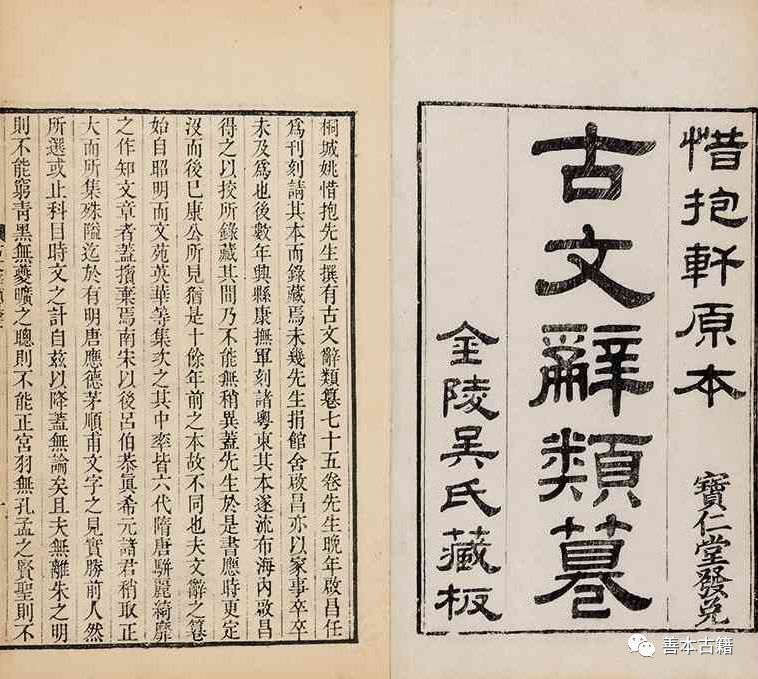 惜抱軒原本
古文辭類篹
金陵吴氏藏板
寶仁堂發兌
桐城姚惜抱先生撰有古文辭類篹七十五卷先生晚年啟昌任
爲刊刻請其本而錄藏焉未幾先生捐館舍啟昌亦以家事卒卒
未及爲也後數年興縣康撫軍刻諸粵東其本遂流布海內啟昌
得之以挍所錄藏其間乃不能無稍異蓋先生於是書應時更定
沒而後已康公所見猶是十餘年前之本故不同也夫文辭之篹
始自昭明而文苑英華等集次之其中率皆六代隋唐駢麗綺靡
之作知文章者蓋擯棄焉南宋以後呂伯恭眞希元諸君稍取正
大而所集殊隘迄於有明唐應德茅順甫文字之見實勝前人然
所選或止科目時文之計自茲以降蓋無論矣且夫無離朱之明
則不能窮靑黑無夔曠之聰則不能正宮羽無孔孟之賢聖則不
善本古籍